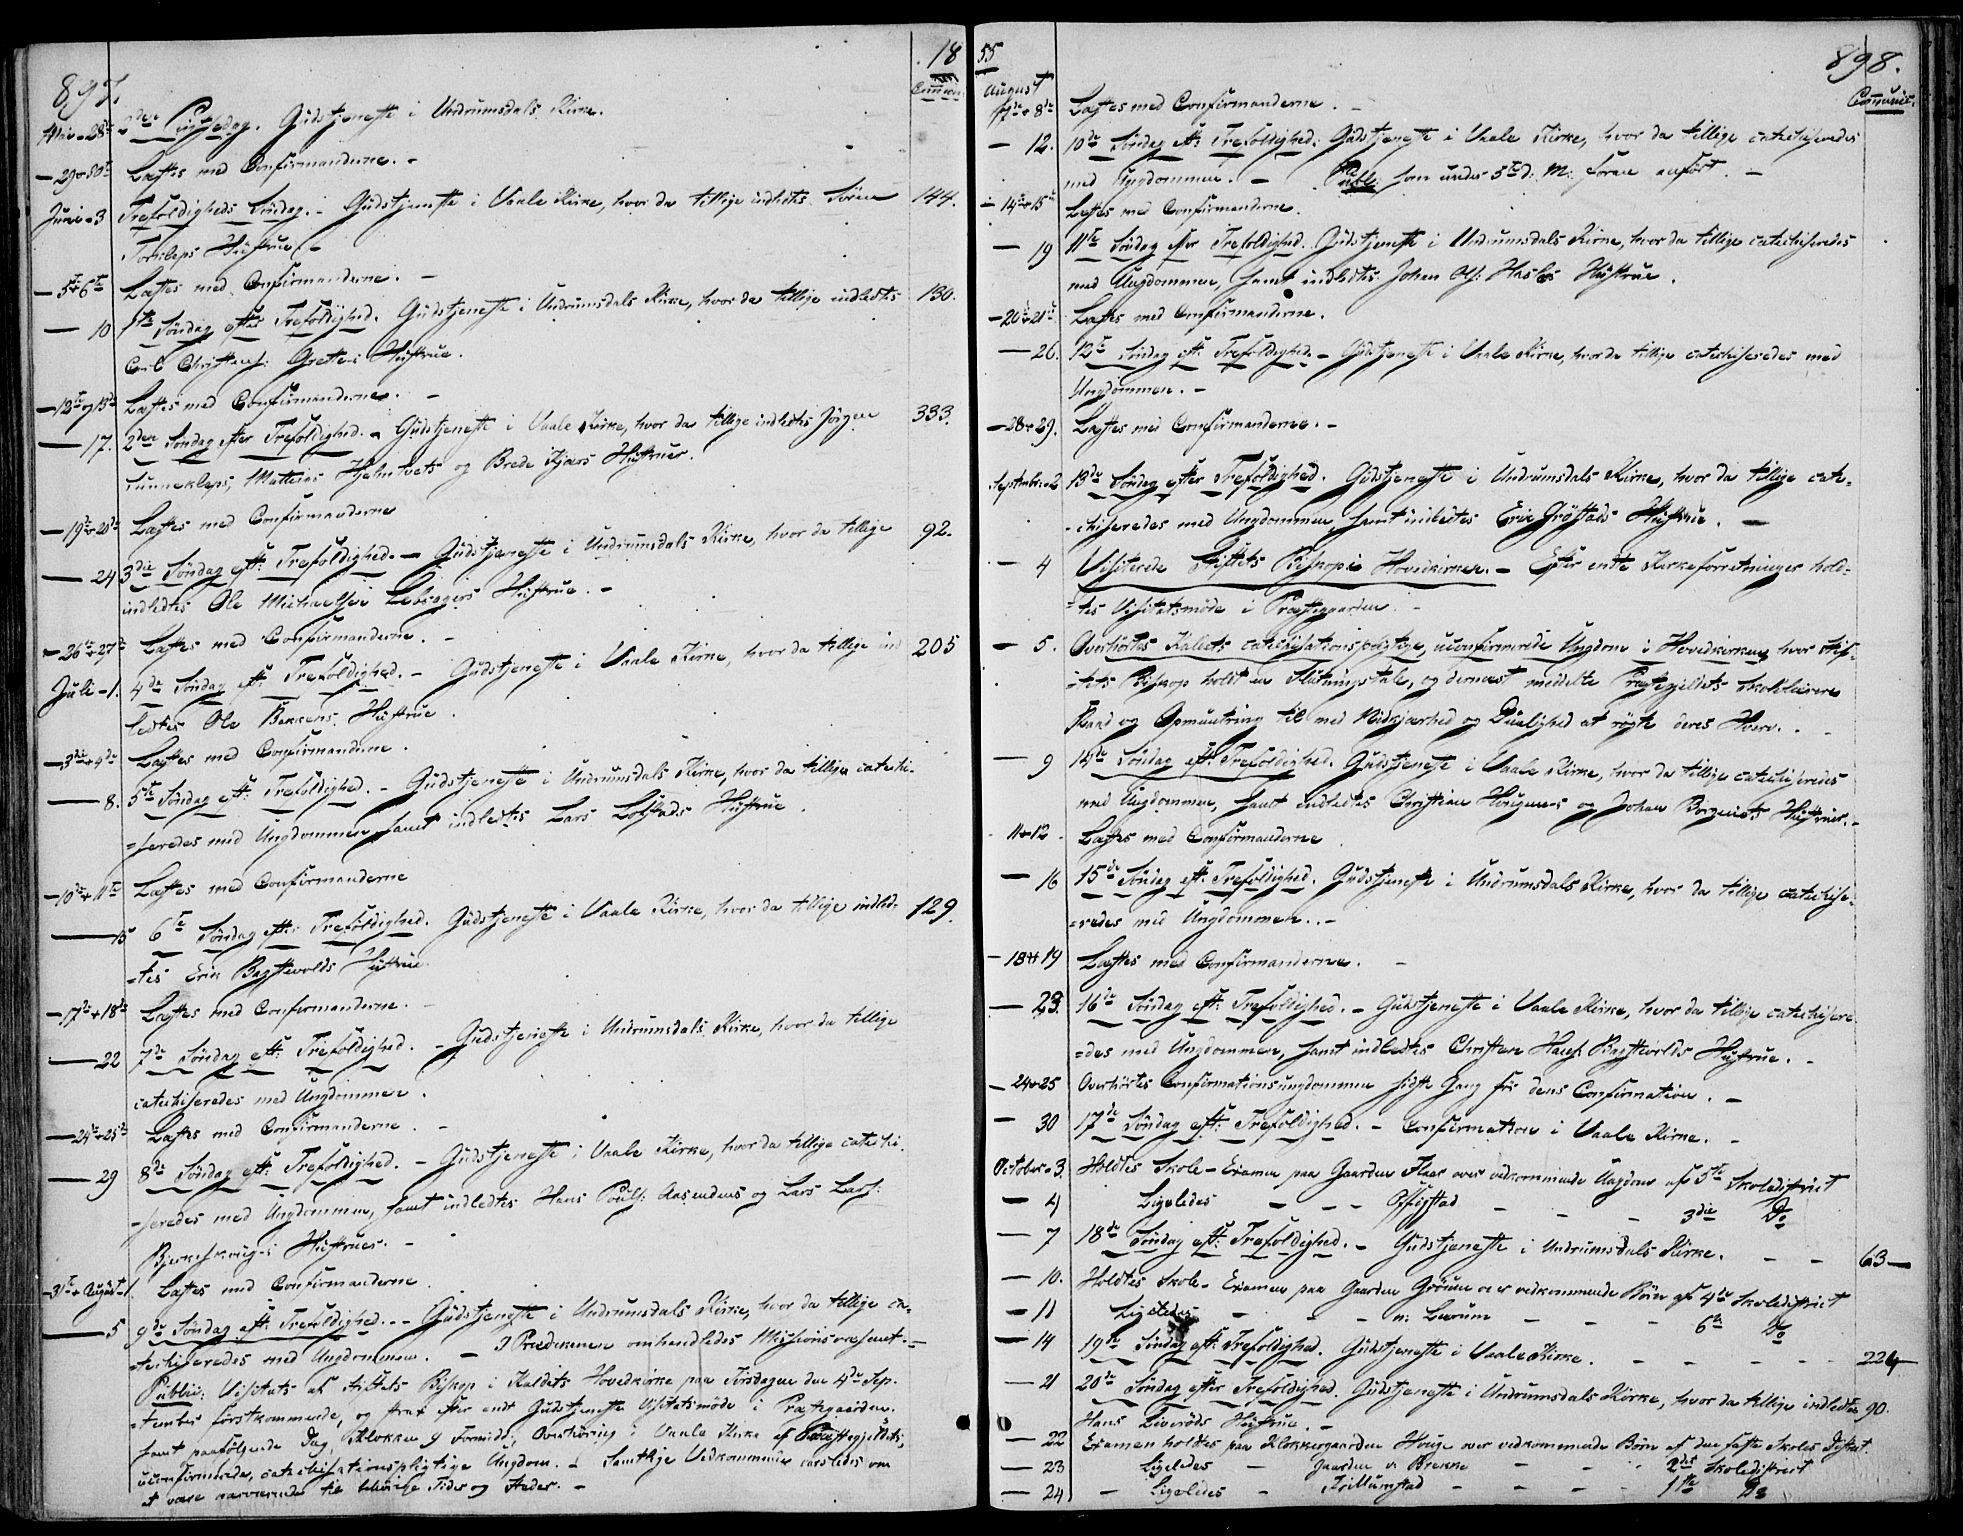 897.
18
Commun.
Mai - 28de 2den Pintsedag. Gudstjeneste i Undrumsdals Kirke.
- 29 + 30te Læstes med Confirmanderne. -
Juni - 3 Trefoldigheds Søndag. - Gudstjeneste i Vaale Kirke, hvor da tillige indledtes Søren 144.
Hustrue. -
- 5te + 6te Læstes med Confirmanderne. -
- 10 1ste Søndag efter Trefoldighed. Gudstjeneste i Undrumsdals Kirke, hvor da tillige indledtes 130.
Carl Christens: Grettes Hustrue.
- 12te og 13de Læstes med Confirmanderne. -
- 17. 2den Søndag efter Trefoldighed. - Gudstjeneste i Vaale Kirke, hvor da tillige indledtes Jørgen 333.
Sunnekleps, Mathias Hjelmtvets og Brede Kjærs Hustruer.
- 19de + 20de Læstes med Confirmanderne
- 24 3die Søndag eft: Trefoldighed. - Gudstjeneste i Undrumsdals Kirke, hvor da tillige 92.
indledtes Ole Michaelsen Hustrue. -
- 26de + 27de Læstes med Confirmanderne. -
Juli - 1. 4de Søndag eft: Trefoldighed. - Gudstjeneste i Vaale Kirke, hvor da tillige ind 205
ledtes Ole Bakkens Hustrue.
- 3die + 4de Læstes med Confirmanderne.
- 8. 5te Søndag eft: Trefoldighed. - Gudstjeneste i Undrumsdals Kirke, hvor da tillige catechi-
=seredes med Ungdommen samt indledtes Lars Løkstads Hustrue.
- 10de + 11te Læstes med Confirmanderne
- 15 6te Søndag efter Trefoldighed. Gudstjeneste i Vaale Kirke, hvor da tillige indled- 129.
=tes Erik Bagstevolds Hustrue.
- 17de + 18de Læstes med Confirmanderne. -
- 22 7de Søndag eft: Trefoldighed. - Gudstjeneste i Undrumsdals Kirke, hvor da tillige
catechiseredes med Ungdommen.
- 24de + 25de Læstes med Confirmanderne. -
- 29 8de Søndag eft: Trefoldighed. - Gudstjeneste i Vaale Kirke, hvor da tillige catechi-
=seredes med Ungdommen, samt indledtes Hans Pouls: Aasendens og Lars Lars:
Bjerkeskoug's Hustruer. -
- 31te + August - 1. Læstes med Confirmanderne.
- 5 9de Søndag eft: Trefoldighed. - Gudstjeneste i Undrumsdals Kirke, hvor da tillige ca-
=techiseredes med Ungdommen. - I Prædikenen omhandledes Missionsvæsenet. -
Public: Visitats af Stiftets Biskop i Kaldets Hovedkirke paa Tirsdagen den 4de Sep-
=tember førstkommende, og strax efter endt Gudstjeneste Visitatsmöde i Præstegaarden.
samt paafølgende Dag, Klokken 9 Formidd: Overhöring i Vaale Kirke af Præstegjeldets,
uconfirmerede, catechisationspligtige Ungdom. - Samtlige Vedkommende varsledes om
at være nærværende til belevige Tider og Steder. -
55
898.
Communic.
August
7de + 8de Læstes med Confirmanderne. -
- 12. 10de Søndag eft: Trefoldighed. Gudstjeneste i Vaale Kirke, hvor da tillige catechiseredes
med Ungdommen. - Publ: som under 5te d: M: foran anført. -
- 14de + 15de Læstes med Confirmanderne.
- 19 11te Søndag efter Trefoldighed. Gudstjeneste i Undrumsdals Kirke, hvor da tillige catechiseredes
med Ungdommen, samt indledtes Johan Ols: Hasles Hustrue.
- 20de + 21de Læstes med Confirmanderne.
- 26. 12te Søndag eft: Trefoldighed. - Gudstjeneste i Vaale Kirke, hvor da tillige catechiseredes med
Ungdommen. -
- 28 + 29. Læstes med Confirmanderne. -
Septembr: - 2 13de Søndag efter Trefoldighed. Gudstjeneste i Undrumsdals Kirke, hvor da tillige cate-
-chiseredes med Ungdommen, samt indledtes Erik Grøstads Hustrue. -
- 4 Visiterede Stiftets Biskop i Hovedkirken. - Efter endte Kirkeforretninger hold-
=tes Visitatsmöde i Præstegaarden. -
- 5. Overhørtes Kaldets catechisationspligtige, uconfirmerede Ungdom i Hovedkirken, hvor Stif-
=tets Biskop holdt en Slutningstale, og dernæst meddelte Præstegjeldets Skolelærere
Raad og Opmuntring til med Nidkjærhed og Duelighed at røgte deres Hverv. -
- 9 14de Søndag eft: Trefoldighed. Gudstjeneste i Vaale Kirke, hvor da tillige catechiseredes
med Ungdommen, samt indledtes Christian og Johan Borgens Hustruer. -
- 11 + 12. Læstes med Confirmanderne
- 16 15de Søndag eft: Trefoldighed. Gudstjeneste i Undrumsdals Kirke, hvor da tillige catechise-
=redes med Ungdommen. -
- 18 + 19 Læstes med Confirmanderne. -
- 23. 16de Søndag eft: Trefoldighed. - Gudstjeneste i Vaale Kirke, hvor da tillige catechisere
=des med Ungdommen, samt indledtes Christen Hans: Bagstevolds Hustrue. -
- 24 + 25 Overhørtes Confirmationsungdommen sidste Gang før dens Confirmation. -
- 30 17de Søndag eft: Trefoldighed. - Confirmation i Vaale Kirke. -
October - 3. Holdtes Skole-Examen paa Gaarden Flaar over vedkommende Ungdom af 5te Skoledistrict
- 4 Ligeledes - - - - - - 3die Do
- 7 18de Søndag eft: Trefoldighed. - Gudstjeneste i Undrumsdals Kirke. - - 63 -
- 10. Holdtes Skole-Examen paa Gaarden over vedkommende Børn af 4de Skoledistrict
- 11 Ligeledes - - - n: Lærum - - - 6te Do
- 14 19de Søndag eft: Trefoldighed. Gudstjeneste i Vaale Kirke. - - - - 224
- 21 20de Søndag efter Trefoldighed. Gudstjeneste i Undrumsdals Kirke, hvor da tillige indledtes 90.
Hans Liverøds Hustrue. -
- 22 Examen holdtes paa Klokkergaarden Houge over vedkommende Børn af den faste Skoles District.
- 23 Ligeledes - Gaarden n: Brekke - - - 2det Skoledistrict
- 24 - Ligeledes - - - - 1ste Do